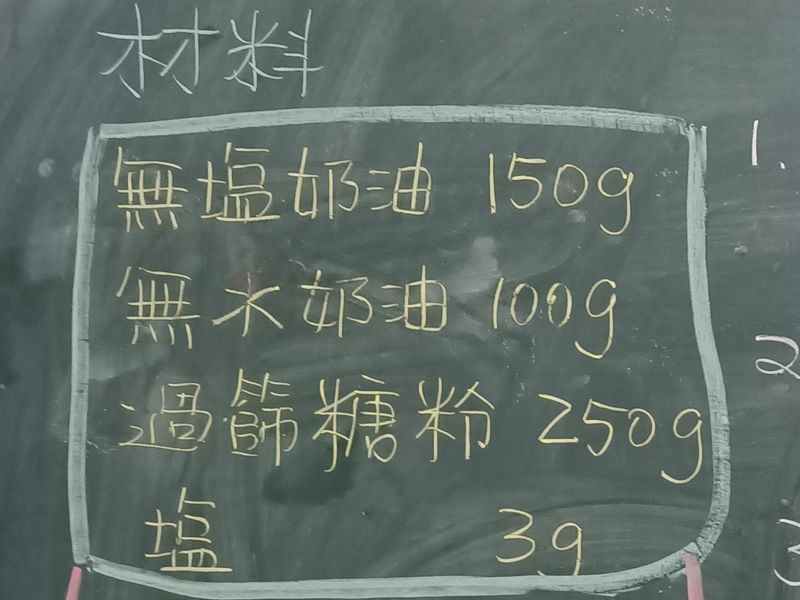 材料
無塩奶油 150g
無水奶油 100g
過篩糖粉 250g
塩 3g
1.
2